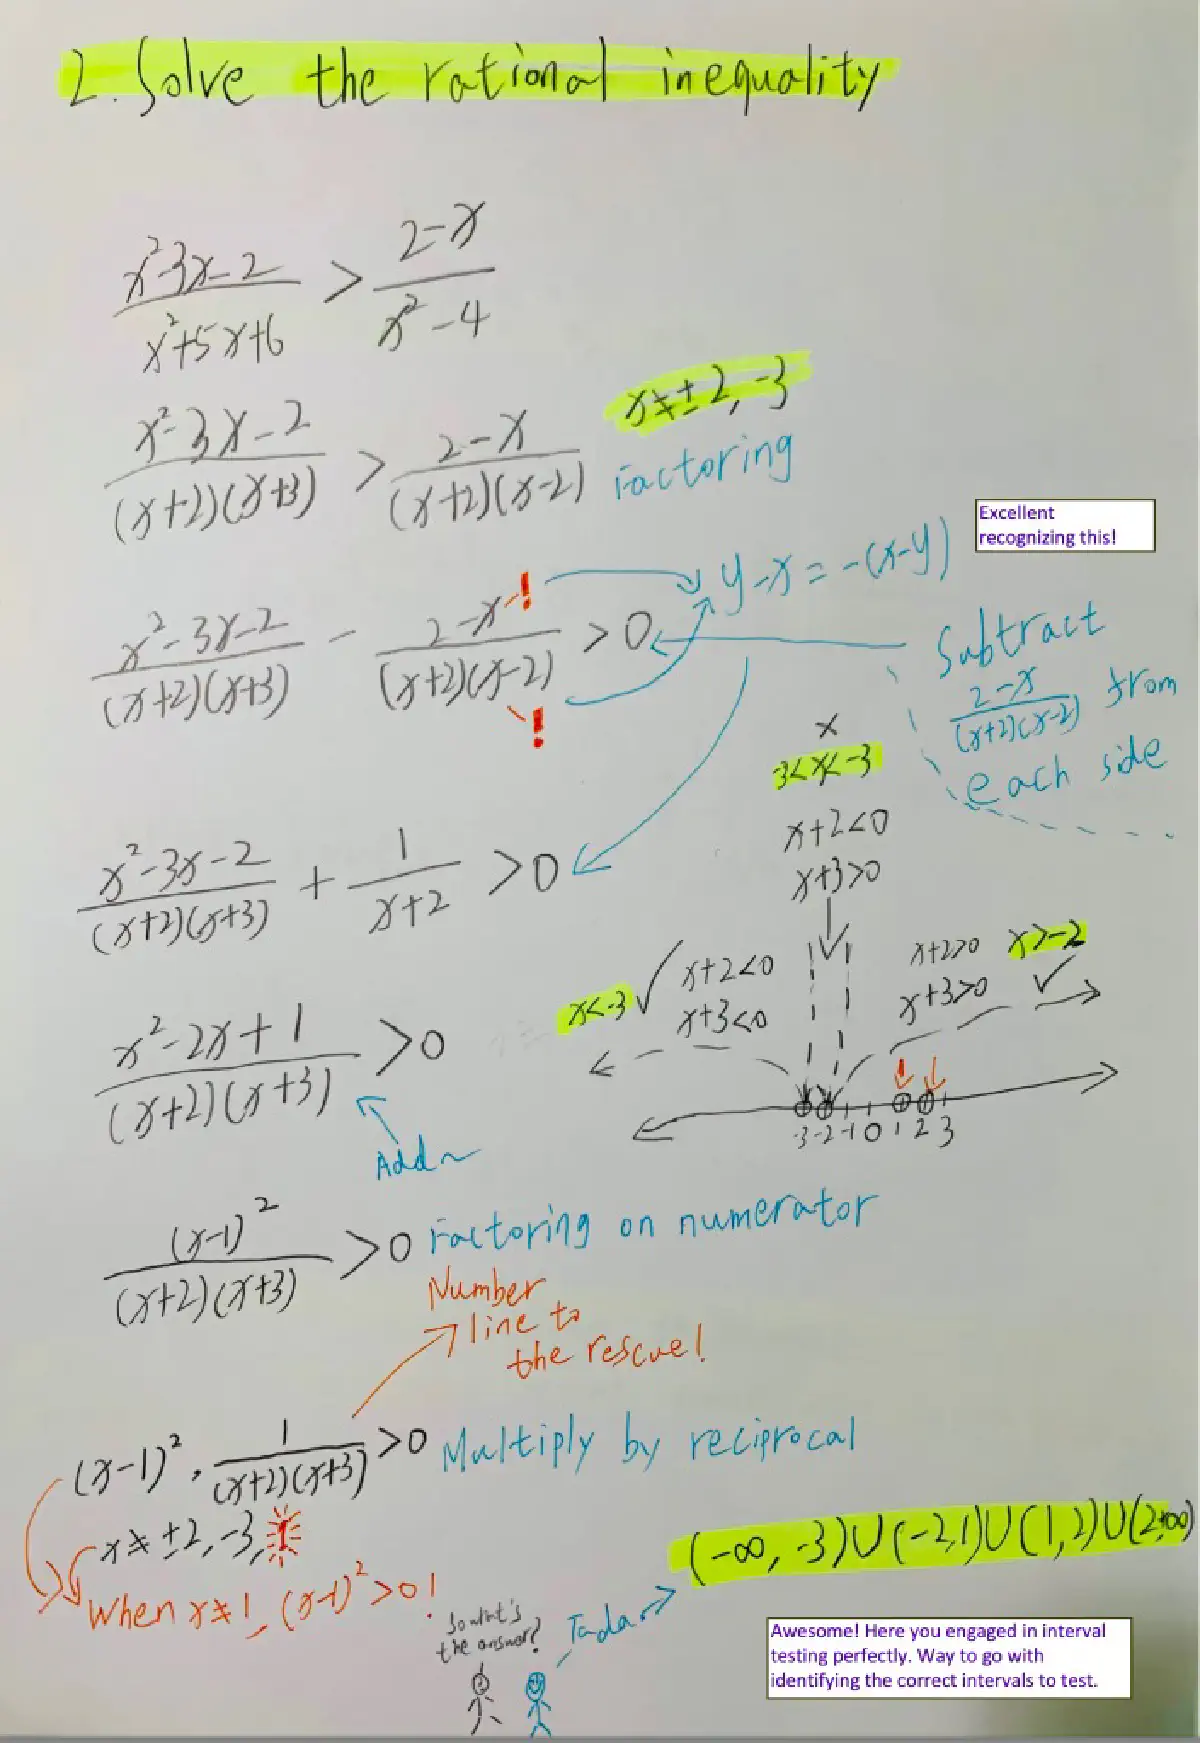 2. Solve the rational inequality
x²-3x-2 / x²+5x+6 > 2-x / x²-4
x≠±2, -3
x²-3x-2 / (x+2)(x+3) > 2-x / (x+2)(x-2) Factoring
Excellent
recognizing this!
y-x = -(x-y)
x²-3x-2 / (x+2)(x+3) - 2-x / (x+2)(x-2) > 0
! !
Subtract
2-x / (x+2)(x-2) from
each side
x
-3<x<-3
x+2<0
x+3>0
x²-3x-2 / (x+2)(x+3) + 1 / x+2 > 0
x<-3 ✓ x+2<0
x+3<0
x+2>0 x>-2
x+3>0 ✓
x²-2x+1 / (x+2)(x+3) > 0
Add~
-3 -2 -1 0 1 2 3
(x-1)² / (x+2)(x+3) > 0 Factoring on numerator
Number
line to
the rescue!
(x-1)² · 1 / (x+2)(x+3) > 0 Multiply by reciprocal
x≠±2, -3, 1
When x≠1, (x-1)²>0!
(-∞, -3)∪(-2,1)∪(1,2)∪(2,+∞)
So what's
the answer?
Tada~
Awesome! Here you engaged in interval
testing perfectly. Way to go with
identifying the correct intervals to test.